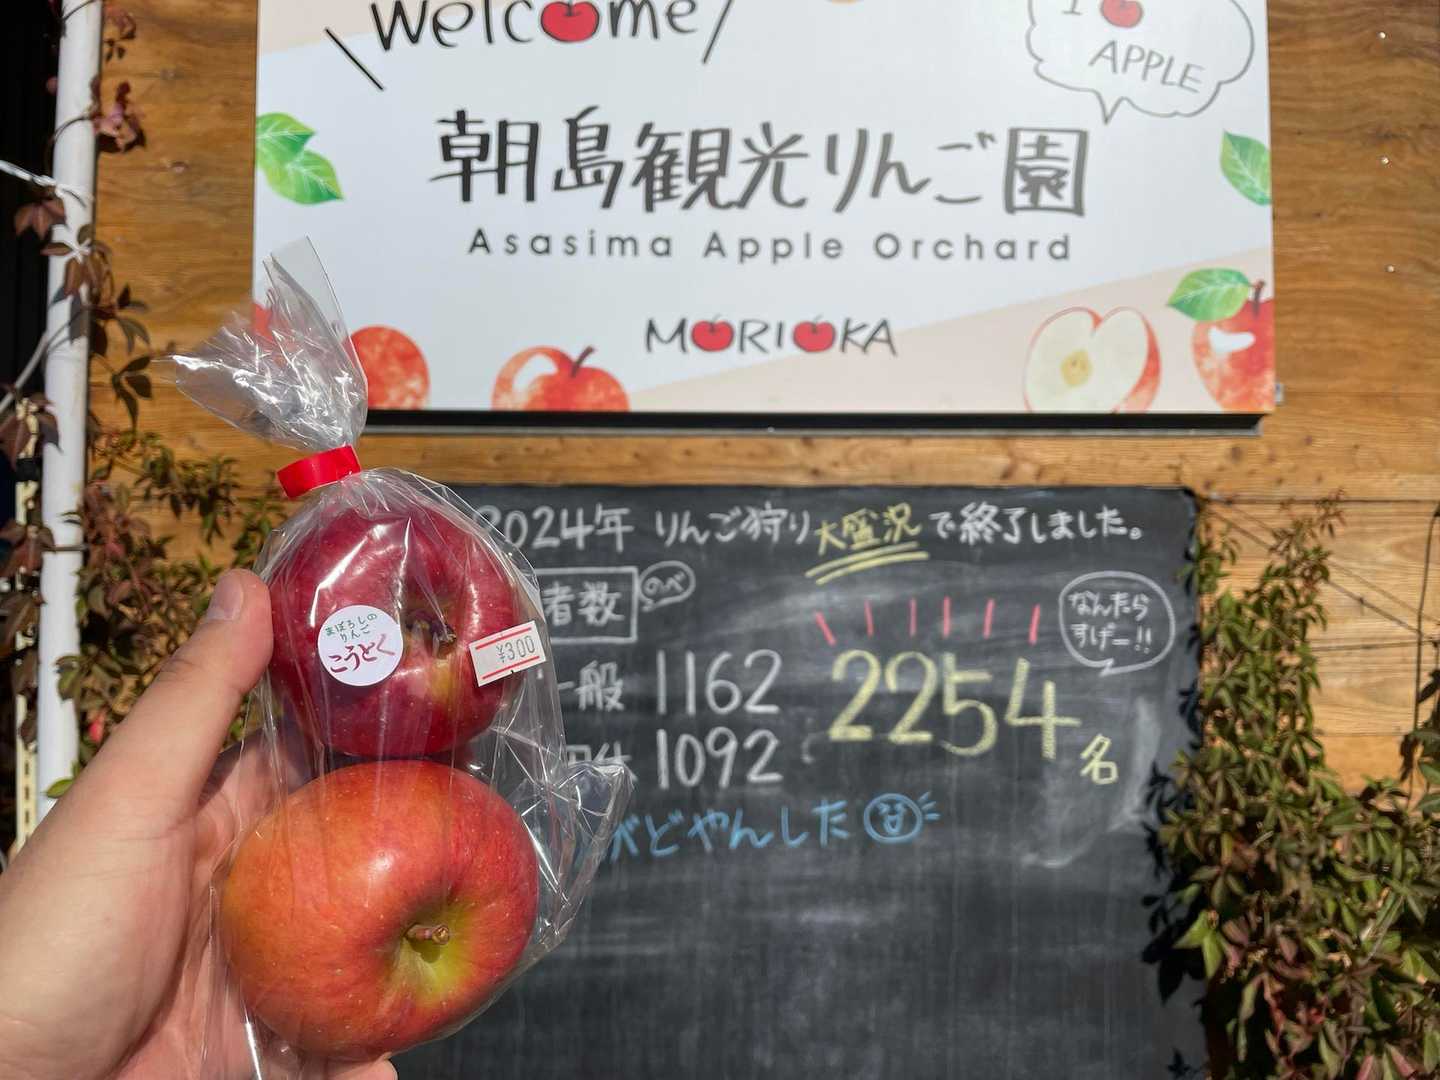 Welcome
I APPLE
朝島観光りんご園
Asasima Apple Orchard
MORIOKA
2024年 りんご狩り大盛況で終了しました。
者数
のべ
一般 1162
1092
2254名
なんたら
すげー!!
がどやんした
まぼろしの
りんご
こうとく
¥300